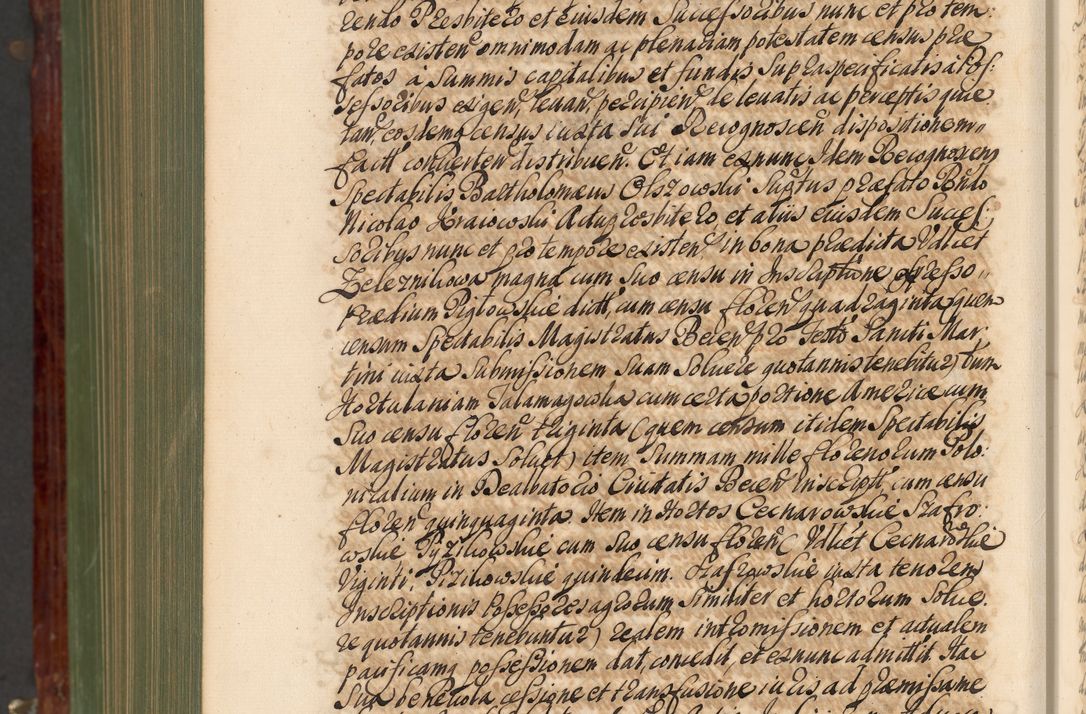 rendo Presbitero et eiusdem Successoribus nunc et pro tem:
pore existen omnimodam ac plenariam potestatem census præ
fatos à Summis capitalibus et fundis Supraspecificatis à Pos:
sessoribus exigen, levan, percipien, de levatis ac perceptis quie
tan, eosdemq census iuxta Sui Recognoscen dispositionem
facit converten distribuen. Et iam exnunc Idem Recognoscens
Spectabilis Bartholomæus Olszowski præfato Rndo
Nicolao Kraiowski Aduq Presbitero et aliis eiusdem Succes:
soribus nunc et pro tempore existen in bona prædicta Vdlicet
Zeleznikowa magna cum Suo censu in Inscriptione expresso
Prædium Piglowskie dict, cum censu floren quadraginta quem
censum Spectabilis Magistratus Becen pro festo Sancti Mar:
tini iuxta Submissionem Suam Solvere quotannis tenebitur) Tum
Hortulaniam Talamagowska cum certa portione Americæ cum
Suo censu floren triginta (quem censum itidem Spectabilis
Magistratus Solvet) item Summam mille florenorum Polo:
nicalium in Dealbatorio Civitatis Becen Inscript cum censu
floren quinquaginta. Item in Hortos Cechnarowskie Szafro:
wskie Pyzikowskie cum Suo censu floren (Vdlicet Cechnarowskie
Viginti, Pizikowskie quindecim. Szafrowskie iuxta tenorem
Inscriptionis Possessores agrorum Similiter et hortorum Solve:
re quotannis tenebuntur) realem intromissionem et actualem
pacificamq possessionem dat, concedit, et exnunc admittit. Hac
Sua benevola cessione et transfusione iuris ad præmissa me